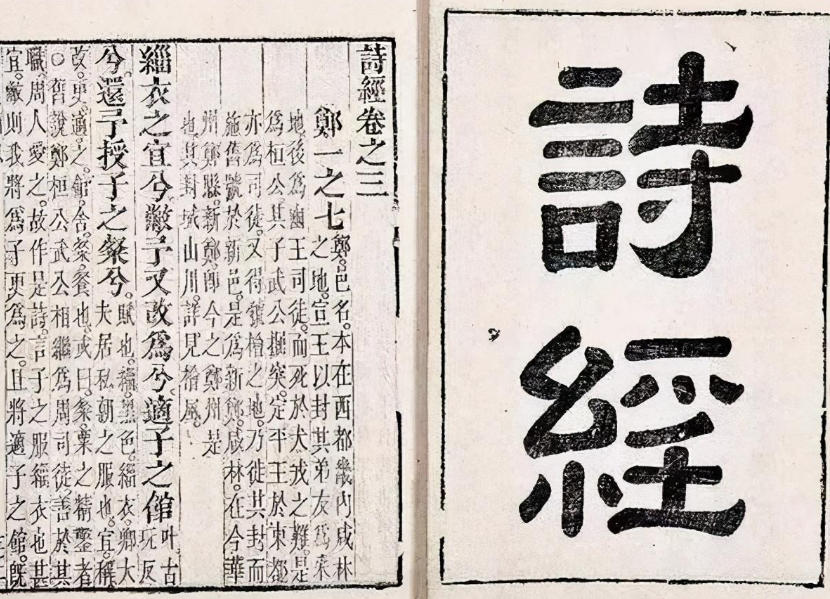 詩經
詩經卷之三
鄭一之七鄭。邑名。本在西都畿內咸林
之地。宣王以封其弟友爲采
地後爲幽王司徒。而死於犬戎之難。是
爲桓公其子武公掘突。定平王於東都
亦爲司徒。又得虢檜之地。乃徙其封而
施舊號於新邑。是爲新鄭。咸林。在今華
州鄭縣。新鄭卽今之鄭州。是
也其封域山川。詳見檜風。
緇衣之宜兮敝予又改爲兮適子之館叶古
玩反
兮。還予授子之粲兮。賦也。緇。黑色。緇衣。卿大
夫居私朝之服也。宜。稱
改。更。適。之。館。舍。粲。餐也。或曰。粲。粟之精鑿者
○舊說鄭桓公武公相繼爲周司徒善於其
職。周人愛之。故作是詩。言子之服緇衣也甚
宜。敝則我將爲子更爲之。且將適子之館。旣